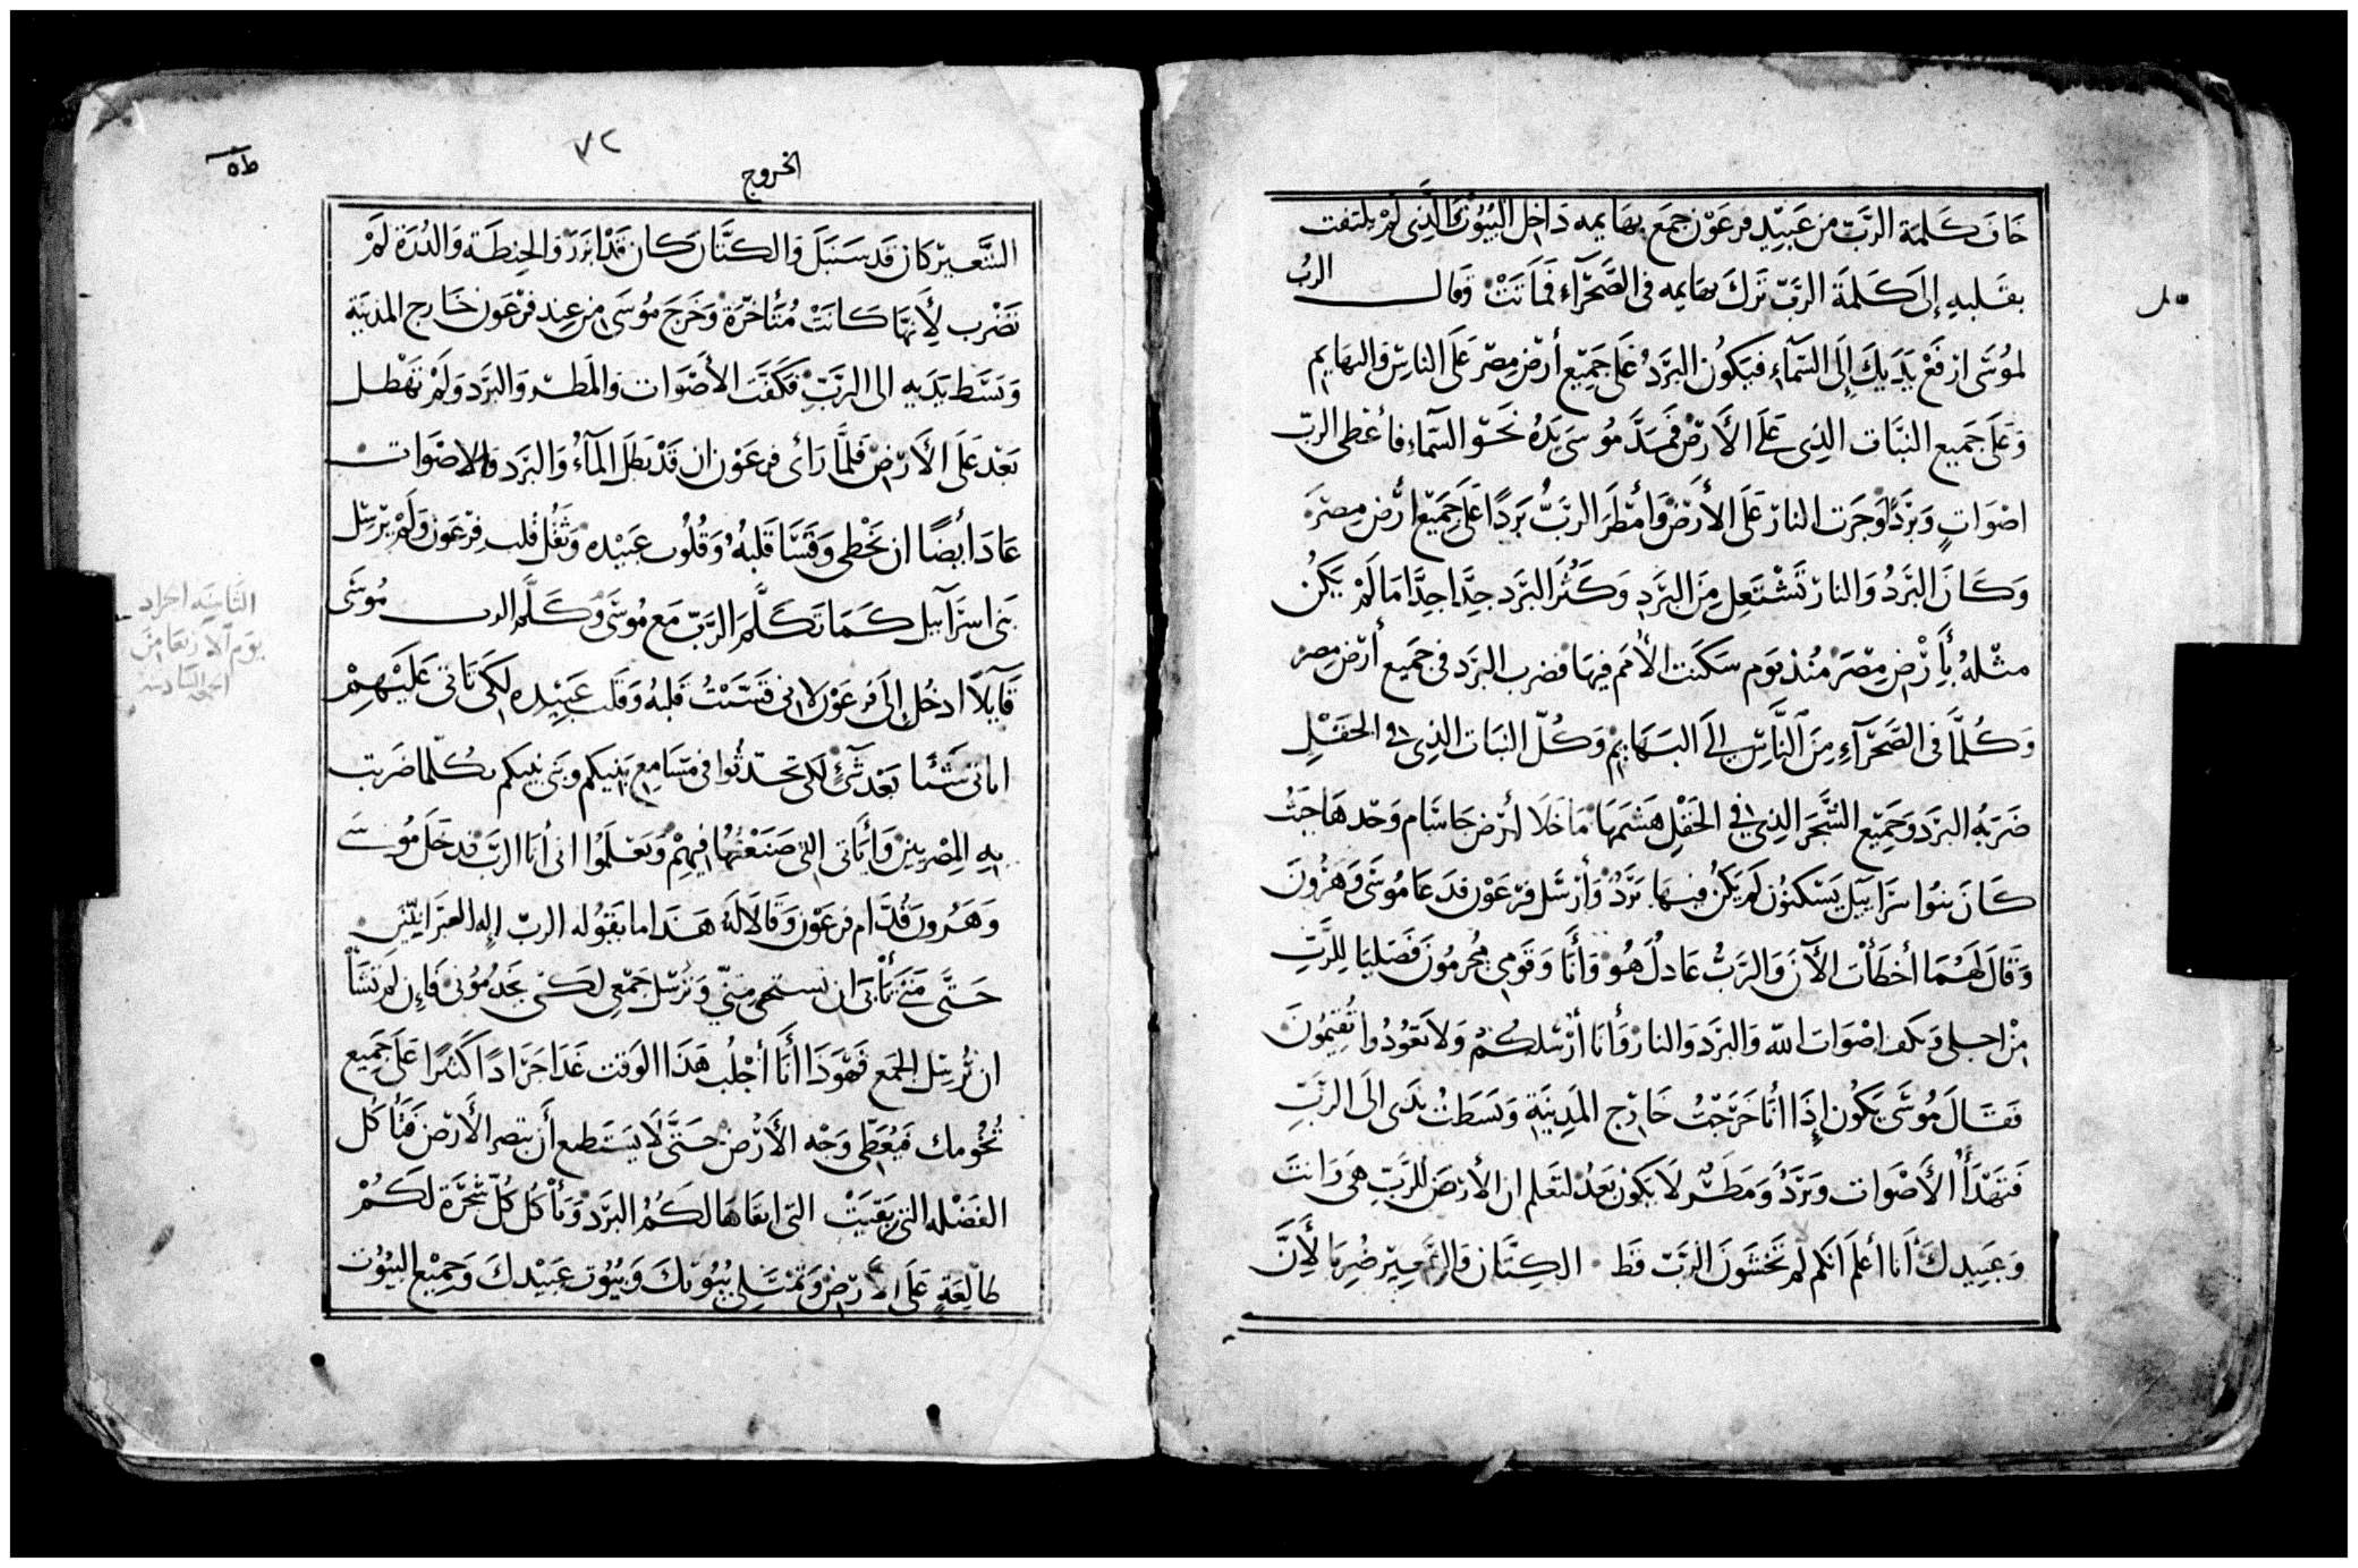 خَافَ كَلمَة الرَبّ من عَبيْدِ فرعَوْن جمَع بهَايمه دَاخِل البُيُوْت وَالَّذِى لَمْ يلتَفت
بقَلبهِ إلىَ كَلمَةَ الرَبّ تَرَكَ بهَايمه فى الصَّحْرَآءِ فَمَاتَتْ وَقال الربُ
لموُسَى ارْفَعْ يَدَيكَ إِلَى السَّمَآءِ فَيَكوُن البَرَدُ عَلَى جَمِيْعِ أرْضِ مِصْرَ عَلَى الناسِ وَالبهَايم
وَعَلَى جَميع النبَّات الذِى عَلَى الأَرْض فمَدَّ موُسَى يَدَهُ نَحْو السَّمآءِ فأعْطى الربّ
اصْوَاتٍ وَبَرَدًا وَجرَت النارْ عَلَى الأَرْضْ وَأمْطَرَ الرَبُّ بَرَدًا عَلَى جَمِيْع أرْض مِصْرَ
وَكَانَ البَرَدُ وَالنارْ تَشْتَعِل مِنَ البَرَدِ وَكَثُرَ البَرَد جِدًّا جِدًّا مَا لَمْ يَكُن
مثْلهُ بأَِرْضِ مِصْرَ مُنْذ يَوْم سَكَنَت الأُمَم فِيهَا فضرب البَرَد فى جَميع أرْض مصر
وَكُلمَّا فى الصَّحْرَآءِ مِنَ النَّاسِ إلىَ البَهَايِمْ وَكُلّ النبَات الذِى فى الحَقْلِ
ضَرَبهُ البَرَد وَجَمِيْعِ الشَّجَر الذِى فى الحَقْلِ هَشمَهَا مَا خَلاَ أرْض جَاسَام وَحْدهَا حَيْثُ
كَانَ بنوُا سْرَاييل يَسْكنوُن لَم يَكُنْ فيهَا بَرَدٌ وَأرْسَل فرْعَوْن فدَعَا موُسَى وَهَرُونَ
وَقَالَ لَهُمَا أخطَأت الآنَ وَالرَبُّ عَادلٌ هُوْ وَأَنَا وَقَومِى مجُرمُونَ فَصَليَا لِلرَّبِّ
مِنْ اجلى وَتكف اصْوَات اللّه وَالبَرَد وَالنارْ وَأَنَا أُرْسِلكُمْ وَلاَ تَعوُدُوا تُقيمُونَ
فَقَالَ موُسَى يَكوُن إِذَا أنَا خَرَجْتُ خَارِج المَدِينَةِ وَبَسَطتُ يَدَى الَى الرَبِّ
فَتَهْدَأُ الأَصْوَات وَبَرَدٌ وَمَطَرٌ لاَ يَكوُن بَعْدُ لتَعلم ان الأرْضَ لِلرَّبِّ هىَ وَانتَ
وَعَبيدكَ أَنا أعلَم انَكم لَمْ تخَشَونَ الرَبّ قَط الكِتَّان وَالشَّعِيْر ضُرِبَا لأِنَّ
الخروج
٧٢
الشَّعِيْر كَان قَد سَنبَلَ وَالكتَّان كَان قَدْ ابزَرَ وَالحِنطَة وَالدُرَة لَمْ
تضْرب لأِنهَّا كَانَتْ مُتَأخرّةْ وَخَرَجَ موُسَى مِن عِند فرْعَون خَارِج المَدينَةِ
وَبَسَط يَدَيهِ الى الرَبِّ فكَفَت الأَصْوَات وَالمَطر وَالبرَد وَلَمْ تهْطل
بَعْد عَلَى الأَرْضِ فلَمَّا رَأى فرعَوْن ان قَدْ بَطَل المَآءُ وَالبَرَد وَالاصْوَات
عَادَ أيْضًا ان يخَطى وَقَسَّا قَلبهُ وَقُلوُب عَبيْده وَثَقُل قَلب فِرْعَوْن وَلَمْ يُرْسِل
بَنى اسرَآييل كَمَا تَكَلَّمَ الرَبّ مَع موُسَى وَكَلَّم الرب موُسَى
قَآيلاً ادخُل إِلَى فرعَوْن لانى قَسَّيْتُ قَلبهُ وَقَلب عَبِيْدهِ لكَى تَاتى عَلَيْهِمْ
اياتى شَيْئا بَعْد شَئٍ لكى تحدّثوُا فى مَسَامِعِ بَنِيكم وبَنى بنيكم بكُلّمَا ضَربت
بِهِ المِصْريين وَأَيَاتى التى صَنَعْتُهَا فِيهِمْ وَتَعْلَمُوا انى أنَا الرَبّ فدخَلَ موُسَى
وَهَرُون قُدَّام فرعَوْن وَقَالاَ لهُ هَذَا مَا يَقوُله الربّ إله العبرَانيّينَ
حَتَّى مَتَى تَأبَى ان تستحى مِنّى وَتُرْسل جَمْعِى لكَىْ يخَدموُنى فَإِن لَمْ تَشَأْ
ان تُرْسِل الجَمْع فَهَوَذَا أَنَا أجْلبُ هَذَا الوَقت غَدًا جَرَادًا كَثيرًا عَلَى جَمِيع
تخُوُمك فيُغَطّى وَجْه الأَرْض حَتَّى لاَ يَسْتَطِيع أَن يبَصر الأَرْض فيَأكُل
الفَضْله التى بَقيَتْ التى ابقَاهَا لَكُمُ البَرَدْ وَيَأْكُل كُلّ شجَرَة لَكُمْ
طَالِعَةٍ عَلَى الأَرْضِ وَتمْتَلى بُيُوْتكَ وَبُيوُت عَبيْدكَ وَجَمِيْع البُيُوْت
الثانيه اجراد
يوم الاربعا من
الجمعه السادسه